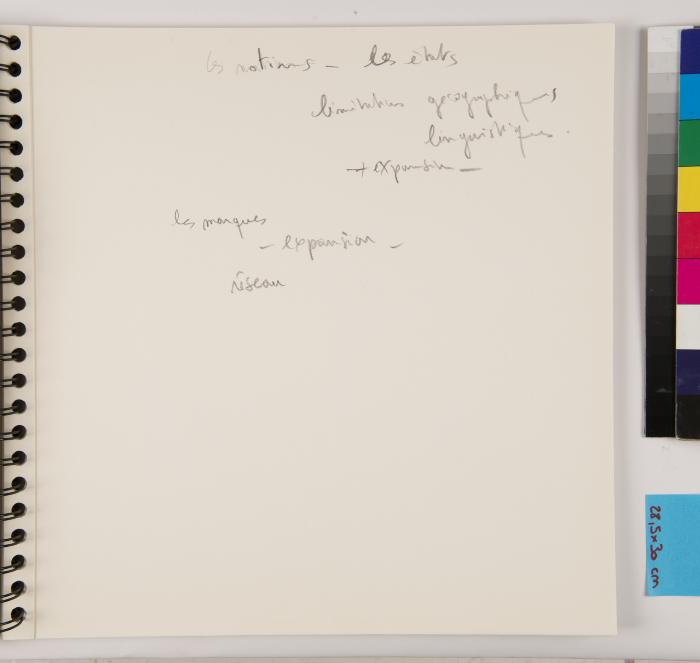 les notions - les états
limitation géographiques
linguistiques.
→ expansion -
les marques
- expansion -
réseau
28,5x30 cm